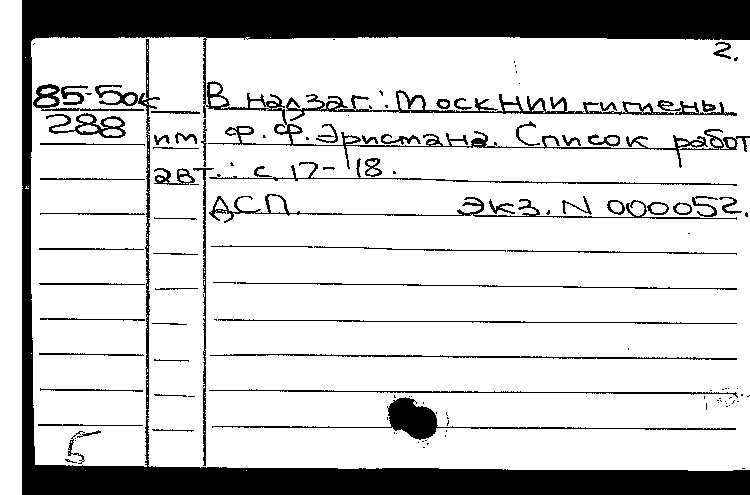 2.
85-5ок В надзаг.: МоскНИИ гигиены
288 им. Ф. Ф. Эрисмана. Список работ
авт.: с. 17-18.
ДСП. Экз. N 000052.
5